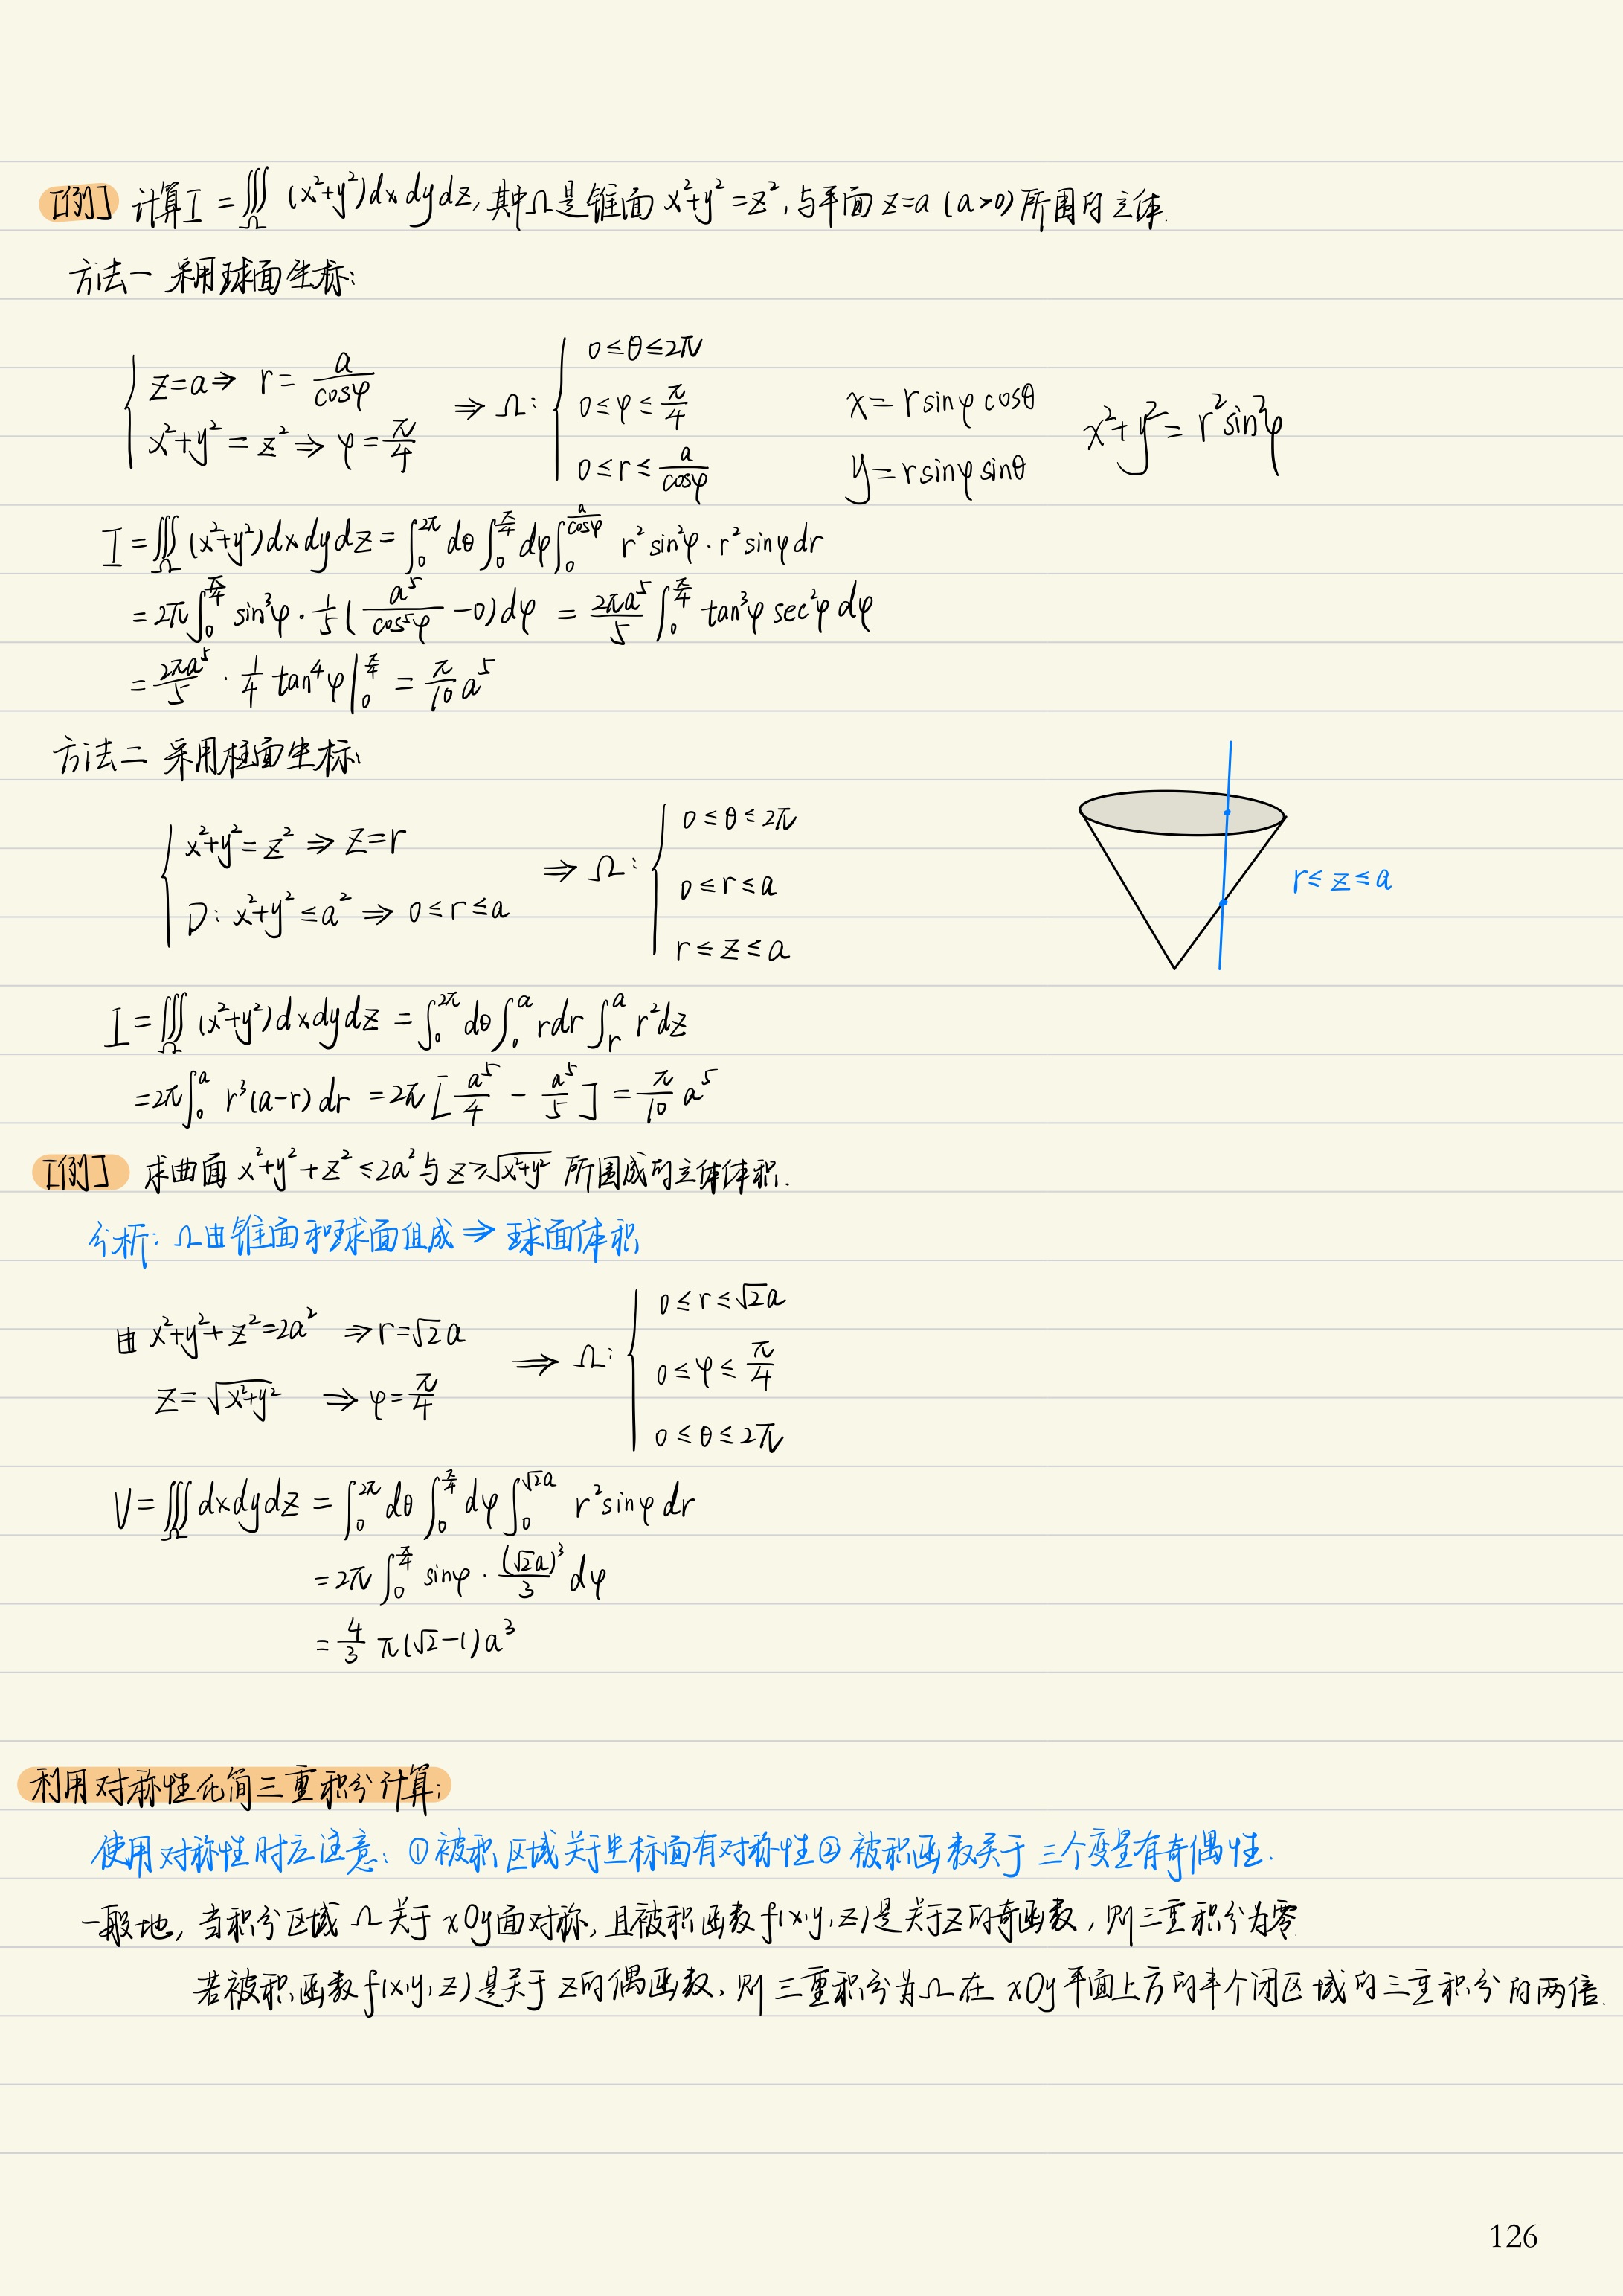 [例] 计算I = ∭_Ω (x²+y²)dxdydz, 其中Ω是锥面 x²+y²=z², 与平面 z=a (a>0) 所围的立体.
方法一 采用球面坐标:
{ z=a ⇒ r = a/cosφ
x²+y²=z² ⇒ φ = π/4
⇒ Ω: { 0≤θ≤2π
0≤φ≤π/4
0≤r≤a/cosφ
x = r sinφ cosθ
y = r sinφ sinθ
x²+y² = r² sin²φ
I = ∭_Ω (x²+y²)dxdydz = ∫_0^{2π} dθ ∫_0^{π/4} dφ ∫_0^{a/cosφ} r² sin²φ · r² sinφ dr
= 2π ∫_0^{π/4} sin³φ · 1/5 ( a⁵/cos⁵φ − 0) dφ = 2πa⁵/5 ∫_0^{π/4} tan³φ sec²φ dφ
= 2πa⁵/5 · 1/4 tan⁴φ |_0^{π/4} = π/10 a⁵
方法二 采用柱面坐标:
{ x²+y²=z² ⇒ z=r
D: x²+y²≤a² ⇒ 0≤r≤a
⇒ Ω: { 0≤θ≤2π
0≤r≤a
r≤z≤a
r≤z≤a
I = ∭_Ω (x²+y²)dxdydz = ∫_0^{2π} dθ ∫_0^a rdr ∫_r^a r²dz
= 2π ∫_0^a r³(a−r) dr = 2π [ a⁵/4 − a⁵/5 ] = π/10 a⁵
[例] 求曲面 x²+y²+z²≤2a² 与 z≥√(x²+y²) 所围成的立体体积.
分析: Ω由锥面和球面组成 ⇒ 球面体积
由 x²+y²+z²=2a² ⇒ r=√2a
z=√(x²+y²) ⇒ φ=π/4
⇒ Ω: { 0≤r≤√2a
0≤φ≤π/4
0≤θ≤2π
V = ∭_Ω dxdydz = ∫_0^{2π} dθ ∫_0^{π/4} dφ ∫_0^{√2a} r² sinφ dr
= 2π ∫_0^{π/4} sinφ · (√2a)³/3 dφ
= 4/3 π(√2−1)a³
利用对称性化简三重积分计算:
使用对称性时应注意: ①被积区域关于坐标面有对称性②被积函数关于三个变量有奇偶性.
一般地, 当积分区域 Ω 关于 xOy面对称, 且被积函数 f(x,y,z)是关于z的奇函数, 则三重积分为零.
若被积函数 f(x,y,z)是关于 z的偶函数, 则三重积分为Ω在 xOy平面上方的半个闭区域的三重积分的两倍.
126